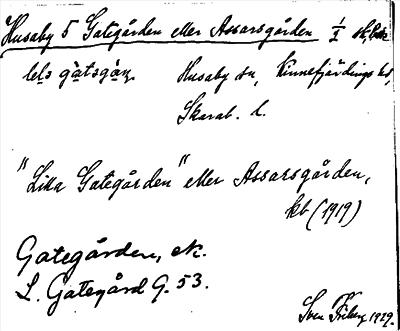 Husaby 5 Gategården eller Assarsgården 1/1
lels gàtsgàn Husaby sn, Kinnefjärdings hd,
Skarab. l.
"Lilla Gategården" eller Assarsgården,
kb (1919)
Gategården, ek.
L. Gategård G. 53.
Sven Friberg 1929.